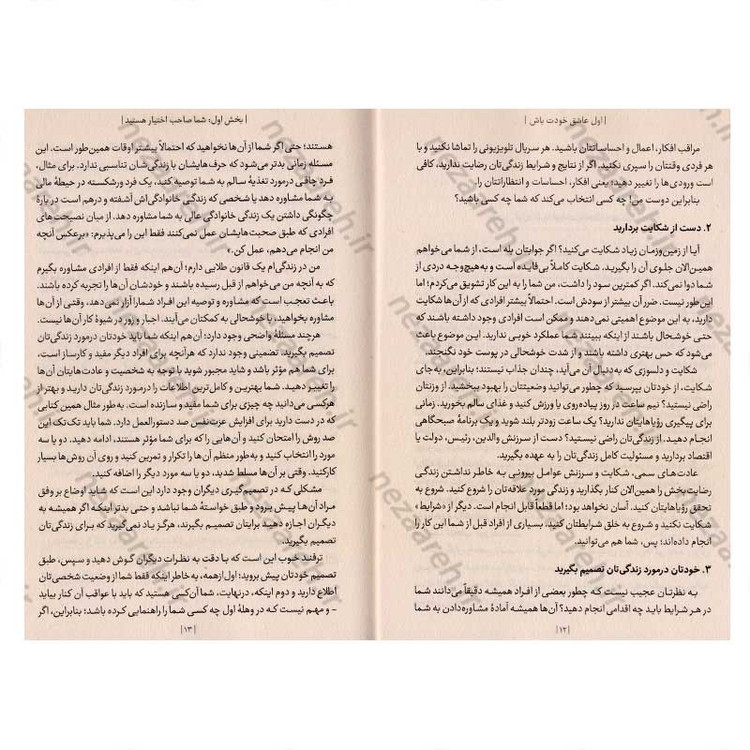 | اول عاشق خودت باش |
مراقب افکار، اعمال و احساساتتان باشید. هر سریال تلویزیونی را تماشا نکنید و با
هر فردی وقتتان را سپری نکنید. اگر از نتایج و شرایط زندگی‌تان رضایت ندارید، کافی
است ورودی‌ها را تغییر دهید؛ یعنی افکار، احساسات و انتظاراتتان را.
بنابراین دوست من! چه کسی انتخاب می‌کند که شما چه کسی باشید؟
۲. دست از شکایت بردارید
آیا از زمین‌وزمان زیاد شکایت می‌کنید؟ اگر جوابتان بله است، از شما می‌خواهم
همین‌الان جلوی آن را بگیرید. شکایت کاملاً بی‌فایده است و به‌هیچ‌وجه دردی از
شما دوا نمی‌کند. اگر کمترین سود را داشت، من شما را به این کار تشویق می‌کردم؛ اما
این‌طور نیست. ضرر آن بیشتر از سودش است. احتمالاً بیشتر افرادی که از آن‌ها شکایت
دارید، به این موضوع اهمیتی نمی‌دهند و ممکن است افرادی وجود داشته باشند که
حتی خوشحال باشند از اینکه ببینند شما عملکرد خوبی ندارید. این موضوع باعث
می‌شود که حس بهتری داشته باشند و از شدت خوشحالی در پوست خود نگنجند.
شکایت و دلسوزی که به‌دنبال آن می‌آید، چندان جذاب نیستند؛ بنابراین، به‌جای
شکایت، از خودتان بپرسید که چطور می‌توانید وضعیتتان را بهبود ببخشید. از وزنتان
راضی نیستید؟ نیم ساعت در روز پیاده‌روی یا ورزش کنید و غذای سالم بخورید. زمانی
برای پیگیری رؤیاهایتان ندارید؟ یک ساعت زودتر بلند شوید و یک برنامهٔ صبحگاهی
انجام دهید. از زندگی‌تان راضی نیستید؟ دست از سرزنش والدین، رئیس، دولت یا
اقتصاد بردارید و مسئولیت کامل زندگی‌تان را به عهده بگیرید.
عادت‌های سمی، شکایت و سرزنش عوامل بیرونی به خاطر نداشتن زندگی
رضایت‌بخش را همین‌الان کنار بگذارید و زندگی مورد علاقه‌تان را شروع کنید. شروع به
تحقق رؤیاهایتان کنید. آسان نخواهد بود؛ اما قطعاً قابل انجام است. دیگر از «شرایط»
شکایت نکنید و شروع به خلق شرایطتان کنید. بسیاری از افراد قبل از شما این کار را
انجام داده‌اند؛ پس، شما هم می‌توانید.
۳. خودتان درمورد زندگی‌تان تصمیم بگیرید
به نظرتان عجیب نیست که چطور بعضی از افراد همیشه دقیقاً می‌دانند شما
در هر شرایط باید چه اقدامی انجام دهید؟ آن‌ها همیشه آمادهٔ مشاوره‌دادن به شما
| ۱۲ |
| بخش اول: شما صاحب اختیار هستید |
هستند؛ حتی اگر شما از آن‌ها نخواهید که احتمالاً بیشتر اوقات همین‌طور است. این
مسئله زمانی بدتر می‌شود که حرف‌هایشان با زندگی‌شان تناسبی ندارد. برای مثال،
فرد چاقی درمورد تغذیهٔ سالم به شما توصیه کند، یک فرد ورشکسته در حیطهٔ مالی
به شما مشاوره دهد یا شخصی که زندگی خانوادگی‌اش آشفته و درهم است در بارهٔ
چگونگی داشتن یک زندگی خانوادگی عالی به شما مشاوره دهد. از میان نصیحت های
افرادی که طبق صحبت‌هایشان عمل نمی‌کنند فقط این را می‌پذیرم: «برعکس آنچه
من انجام می‌دهم، عمل کن.»
من در زندگی‌ام یک قانون طلایی دارم؛ آن‌هم اینکه فقط از افرادی مشاوره بگیرم
که به آنچه من می‌خواهم از قبل رسیده باشند و خودشان آن‌ها را تجربه کرده باشند.
باعث تعجب است که مشاوره و توصیه این افراد شما را آزار نمی‌دهد، وقتی از آن‌ها
مشاوره بخواهید، با خوشحالی به کمکتان می‌آیند. اجبار و زور در شیوهٔ کار آن‌ها نیست.
هرچند مسئلهٔ واضحی وجود دارد؛ آن‌هم اینکه شما باید خودتان درمورد زندگی‌تان
تصمیم بگیرید. تضمینی وجود ندارد که هرآنچه برای افراد دیگر مفید و کارساز است،
برای شما هم مؤثر باشد و شاید مجبور شوید با توجه به شخصیت و عادت‌هایتان آن‌ها
را تغییر دهید. شما بهترین و کامل‌ترین اطلاعات را درمورد زندگی‌تان دارید و بهتر از
هرکسی می‌دانید چه چیزی برای شما مفید و سازنده است. به‌طور مثال همین کتابی
که در دست دارید برای افزایش عزت‌نفس صد دستورالعمل دارد. شما باید تک‌تک این
صد روش را امتحان کنید و آن‌هایی را که برای شما مؤثر هستند، ادامه دهید. دو یا سه
مورد را انتخاب کنید و به‌طور منظم آن‌ها را تکرار و تمرین کنید و روی آن روش‌ها بسیار
کارکنید. وقتی بر آن‌ها مسلط شدید، دو یا سه مورد دیگر را اضافه کنید.
مشکلی که در تصمیم‌گیری دیگران وجود دارد این است که شاید اوضاع بر وفق
مراد آن‌ها پیش برود و طبق خواستهٔ شما نباشد و حتی بدتر اینکه اگر همیشه به
دیگران اجازه دهید برایتان تصمیم بگیرند، هرگز یاد نمی‌گیرید که برای زندگی‌تان
تصمیم بگیرید.
ترفند خوب این است که با دقت به نظرات دیگران گوش دهید و سپس، طبق
تصمیم خودتان پیش بروید؛ اول‌ازهمه، به خاطر اینکه فقط شما از وضعیت شخصی‌تان
اطلاع دارید و دوم اینکه، درنهایت، شما آن‌کسی هستید که باید با عواقب آن کنار بیاید
- و مهم نیست که در وهلهٔ اول چه کسی شما را راهنمایی کرده باشد؛ بنابراین، اگر
| ۱۳ |
nezaareh.ir